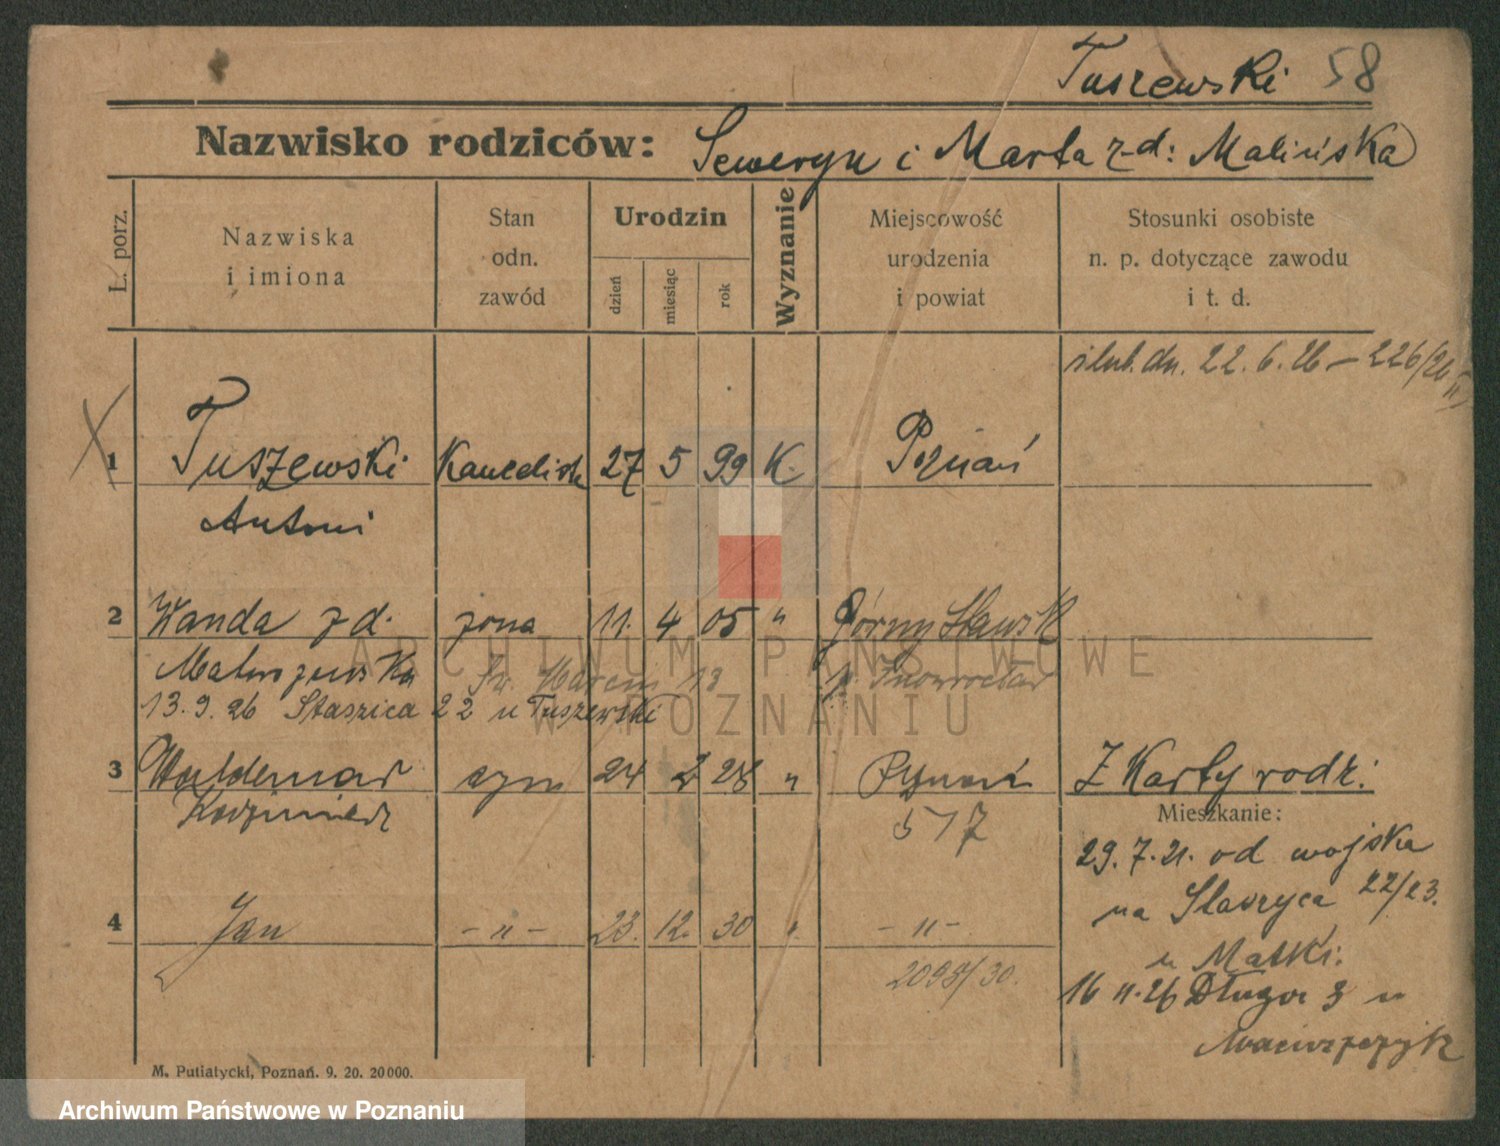 Tuszewski 58
Nazwisko rodziców: Seweryn i Marta z d: Malińska
L. porz.
Nazwiska
i imiona
Stan
odn.
zawód
Urodzin
dzień
miesiąc
rok
Wyznanie
Miejscowość
urodzenia
i powiat
Stosunki osobiste
n. p. dotyczące zawodu
i t. d.
ślub. dn. 22. 6. 26 — 226/26
1 Tuszewski Kancelista 27 5 99 K. Poznań
Antoni
2 Wanda z d. żona 11. 4 05 "
św. Marcin 13 p. Inowrocław
13. 9. 26 Staszica 22 u Tuszewski
3 Waldemar syn 24 2 28 " Poznań Z Karty rodz:
Kazimierz 517
Mieszkanie:
29. 7. 21. od wojska
na Staszyca 22/23.
u Matki.
4 Jan - " - 23. 12. 30 " - " -
2093/30.
16 11. 26 Długa 3 u
M. Putiatycki, Poznań. 9. 20. 20000.
ARCHIWUM PAŃSTWOWE
W POZNANIU
Archiwum Państwowe w Poznaniu